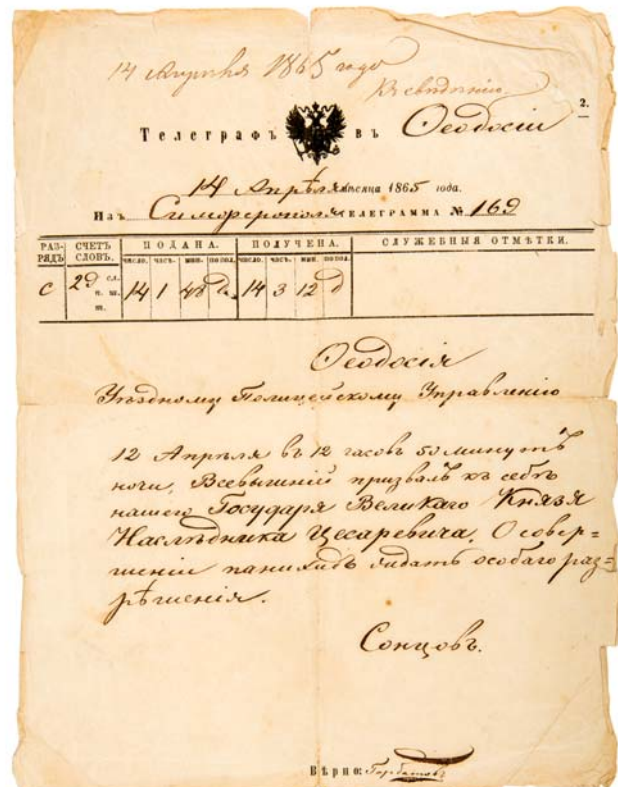 14 Апреля 1865 года
К сведению.
2.
Телеграфъ въ Ѳеодосіи
14 Апрѣля мѣсяца 1865 года.
Изъ Симферополя ТЕЛЕГРАММА № 169
РАЗ- СЧЕТЪ ПОДАНА. ПОЛУЧЕНА. СЛУЖЕБНЫЯ ОТМѢТКИ.
РЯДЪ СЛОВЪ. ЧИСЛО. ЧАСЪ. МИН. ПОПОЛ. ЧИСЛО. ЧАСЪ. МИН. ПОПОЛ.
С 29 сл. 14 1 48 14 3 12
п. ш.
т.
Ѳеодосія
Уѣздному Полицейскому Управленію
12 Апрѣля въ 12 часовъ 50 минутъ
ночи, Всевышній призвалъ къ себѣ
нашего Государя Великаго Князя
Наслѣдника Цесаревича. О совер=
шеніи панихидъ ждать особаго раз=
рѣшенія.
Сонцовъ.
Вѣрно: